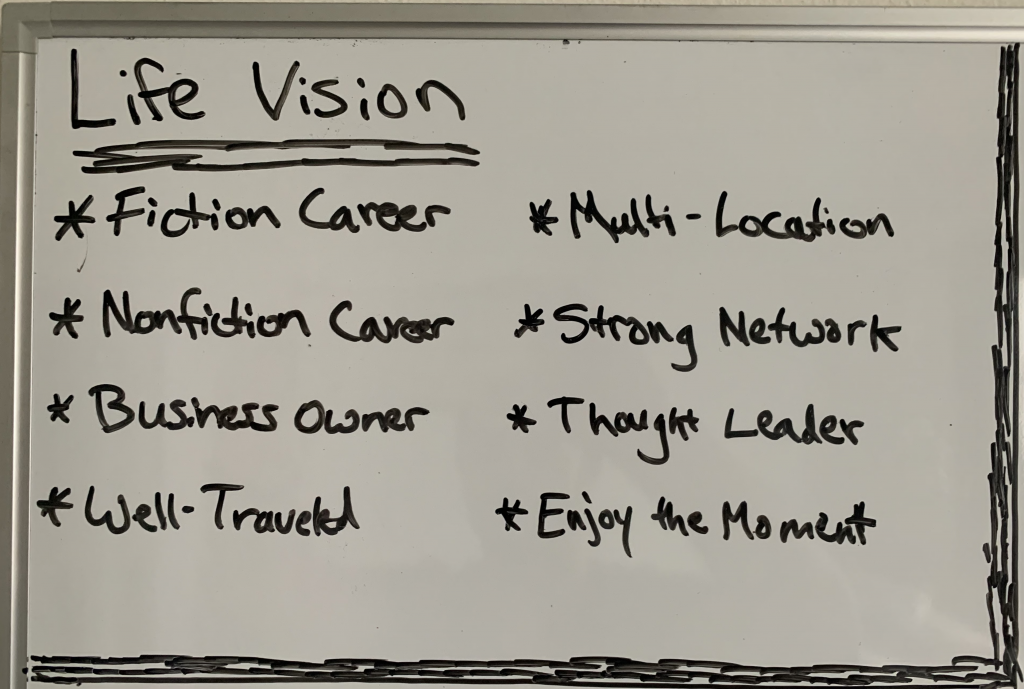 Life Vision
* Fiction Career
* Nonfiction Career
* Business Owner
* Well-Traveled
* Multi-Location
* Strong Network
* Thought Leader
* Enjoy the Moment